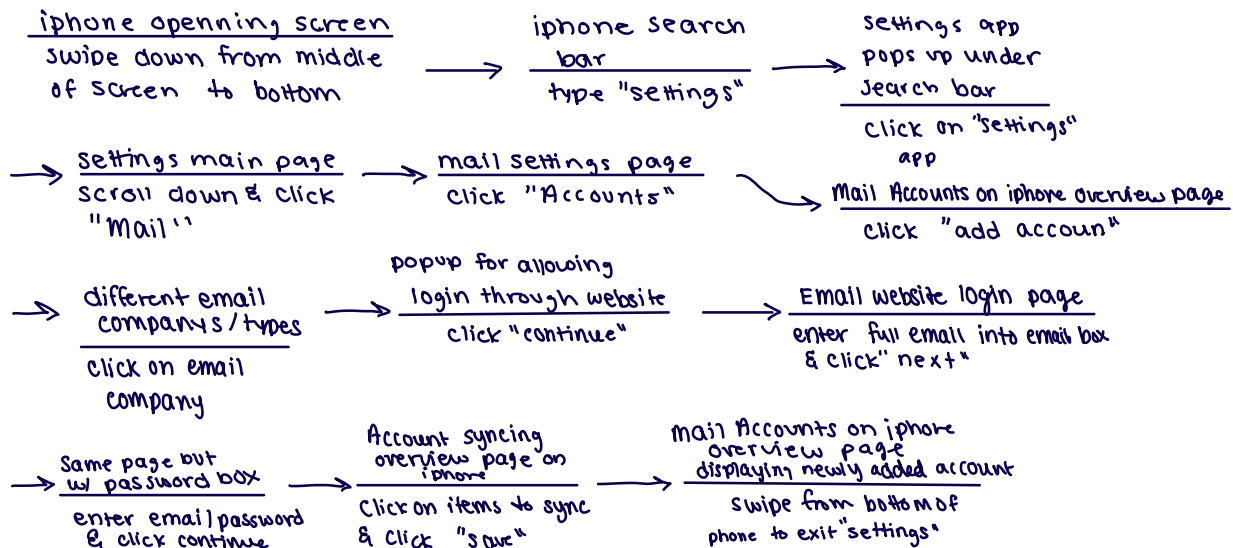 iphone openning screen
swipe down from middle
of screen to bottom
iphone search
bar
type "settings"
settings app
pops up under
search bar
click on "settings"
app
settings main page
scroll down & click
"Mail"
mail settings page
click "Accounts"
Mail Accounts on iphone overview page
click "add accoun"
different email
companys/types
click on email
company
popup for allowing
login through website
click "continue"
Email website login page
enter full email into email box
& click "next"
Same page but
w/ password box
enter email password
& click continue
Account syncing
overview page on
iphone
Click on items to sync
& click "save"
Mail Accounts on iphone
overview page
displaying newly added account
swipe from bottom of
phone to exit "settings"